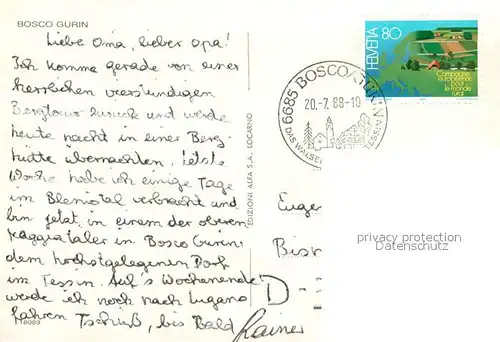 BOSCO GURIN
Liebe Oma, lieber Opa!
Ich komme gerade von einer
herrlichen vierstündigen
Bergtour zurück und werde
heute nacht in einer Berg-
hütte übernachten. Letzte
Woche habe ich einige Tage
im Bleniotal verbracht und
bin jetzt in einem der oberen
Maggiatäler in Bosco Gurin
dem höchstgelegenen Dorf
im Tessin. Auf's Wochenende
werde ich noch nach Lugano
fahren Tschüß, bis bald
Rainer
18089
EDIZIONI ALFA S.A., LOCARNO
6685 BOSCO/GURIN
20.-7.88-10
DAS WALSER
TESSIN
HELVETIA 80
Campagne
européenne
pour
le monde
rural
Euge
Bis
D-
privacy protection
Datenschutz